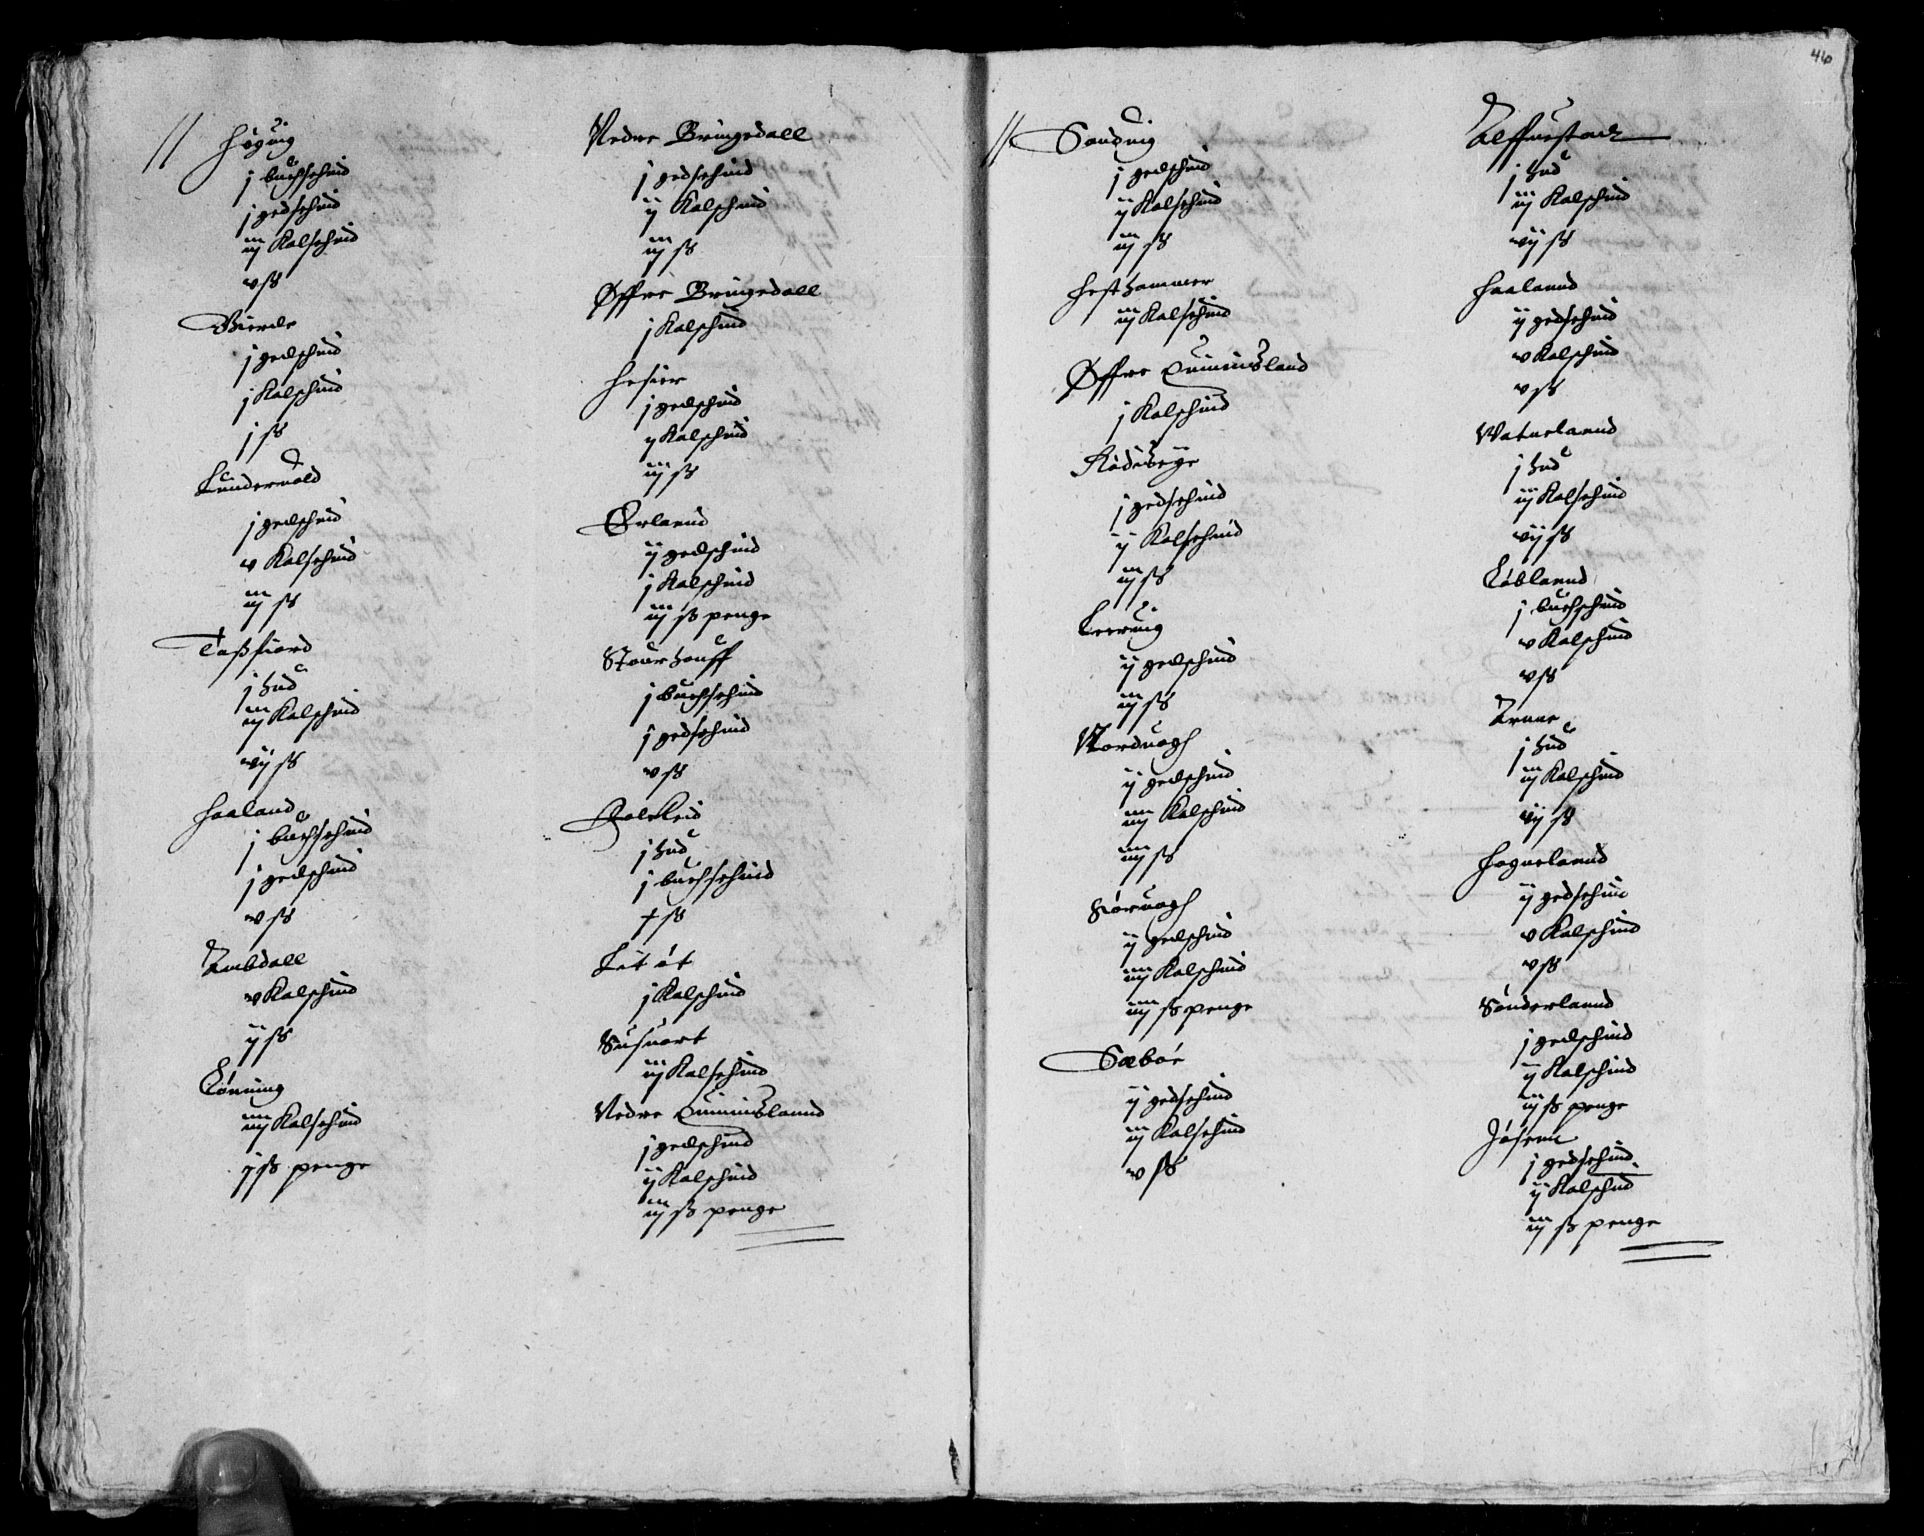 Høguig
j buchschind
j gedschind
iij Kalschind
v ß
Gierde
j gedschind
j Kalschind
j ß
Lunderuold
j gedschind
v Kalschind
iij ß
Taßfiord
j hud
iij Kalschind
vij ß
Haaland
j buchschind
j gedschind
v ß
Embdall
v Kalschind
ij ß
Lønning
iiij Kalschind
ij ß penge
Nedre Bringedall
j gedschind
ij Kalschind
iij ß
Øffre Bringedall
j Kalschind
Hesier
j gedschind
ij Kalschind
iij ß
Ørlannd
ij gedschind
j Kalschind
iij ß penge
Stourhouff
j buchschind
j gedschind
v ß
j hud
j buchschind
x ß
Litøt
j Kalschind
Susuort
iij Kalschind
Nedre Quinnisland
j gedschind
ij Kalschind
iij ß penge
46
Sanduig
j gedschind
ij Kalschind
iij ß
Hesthammer
iij Kalschind
Øffre Quinnisland
j Kalschind
Rødisøye
j gedschind
ij Kalschind
iij ß
Leeruig
ij gedschind
iij ß
Norduogh
ij gedschind
iiij Kalschind
iiij ß
Søruogh
ij gedschind
iiij Kalschind
iiij ß penge
Sæbøe
ij gedschind
iij Kalschind
v ß
j hud
iij Kalschind
vij ß
Haalannd
ij gedschind
v Kalschind
v ß
Watnelannd
j hud
iij Kalschind
vij ß
Løblannd
j buchschind
v Kalschind
v ß
Ernne
j hud
iij Kalschind
vij ß
Hognelannd
ij gedschind
v Kalschind
v ß
Sønderlannd
j gedschind
ij Kalschind
iij ß penge
Jøsenn
j gedschind
ij Kalschind
iij ß penge